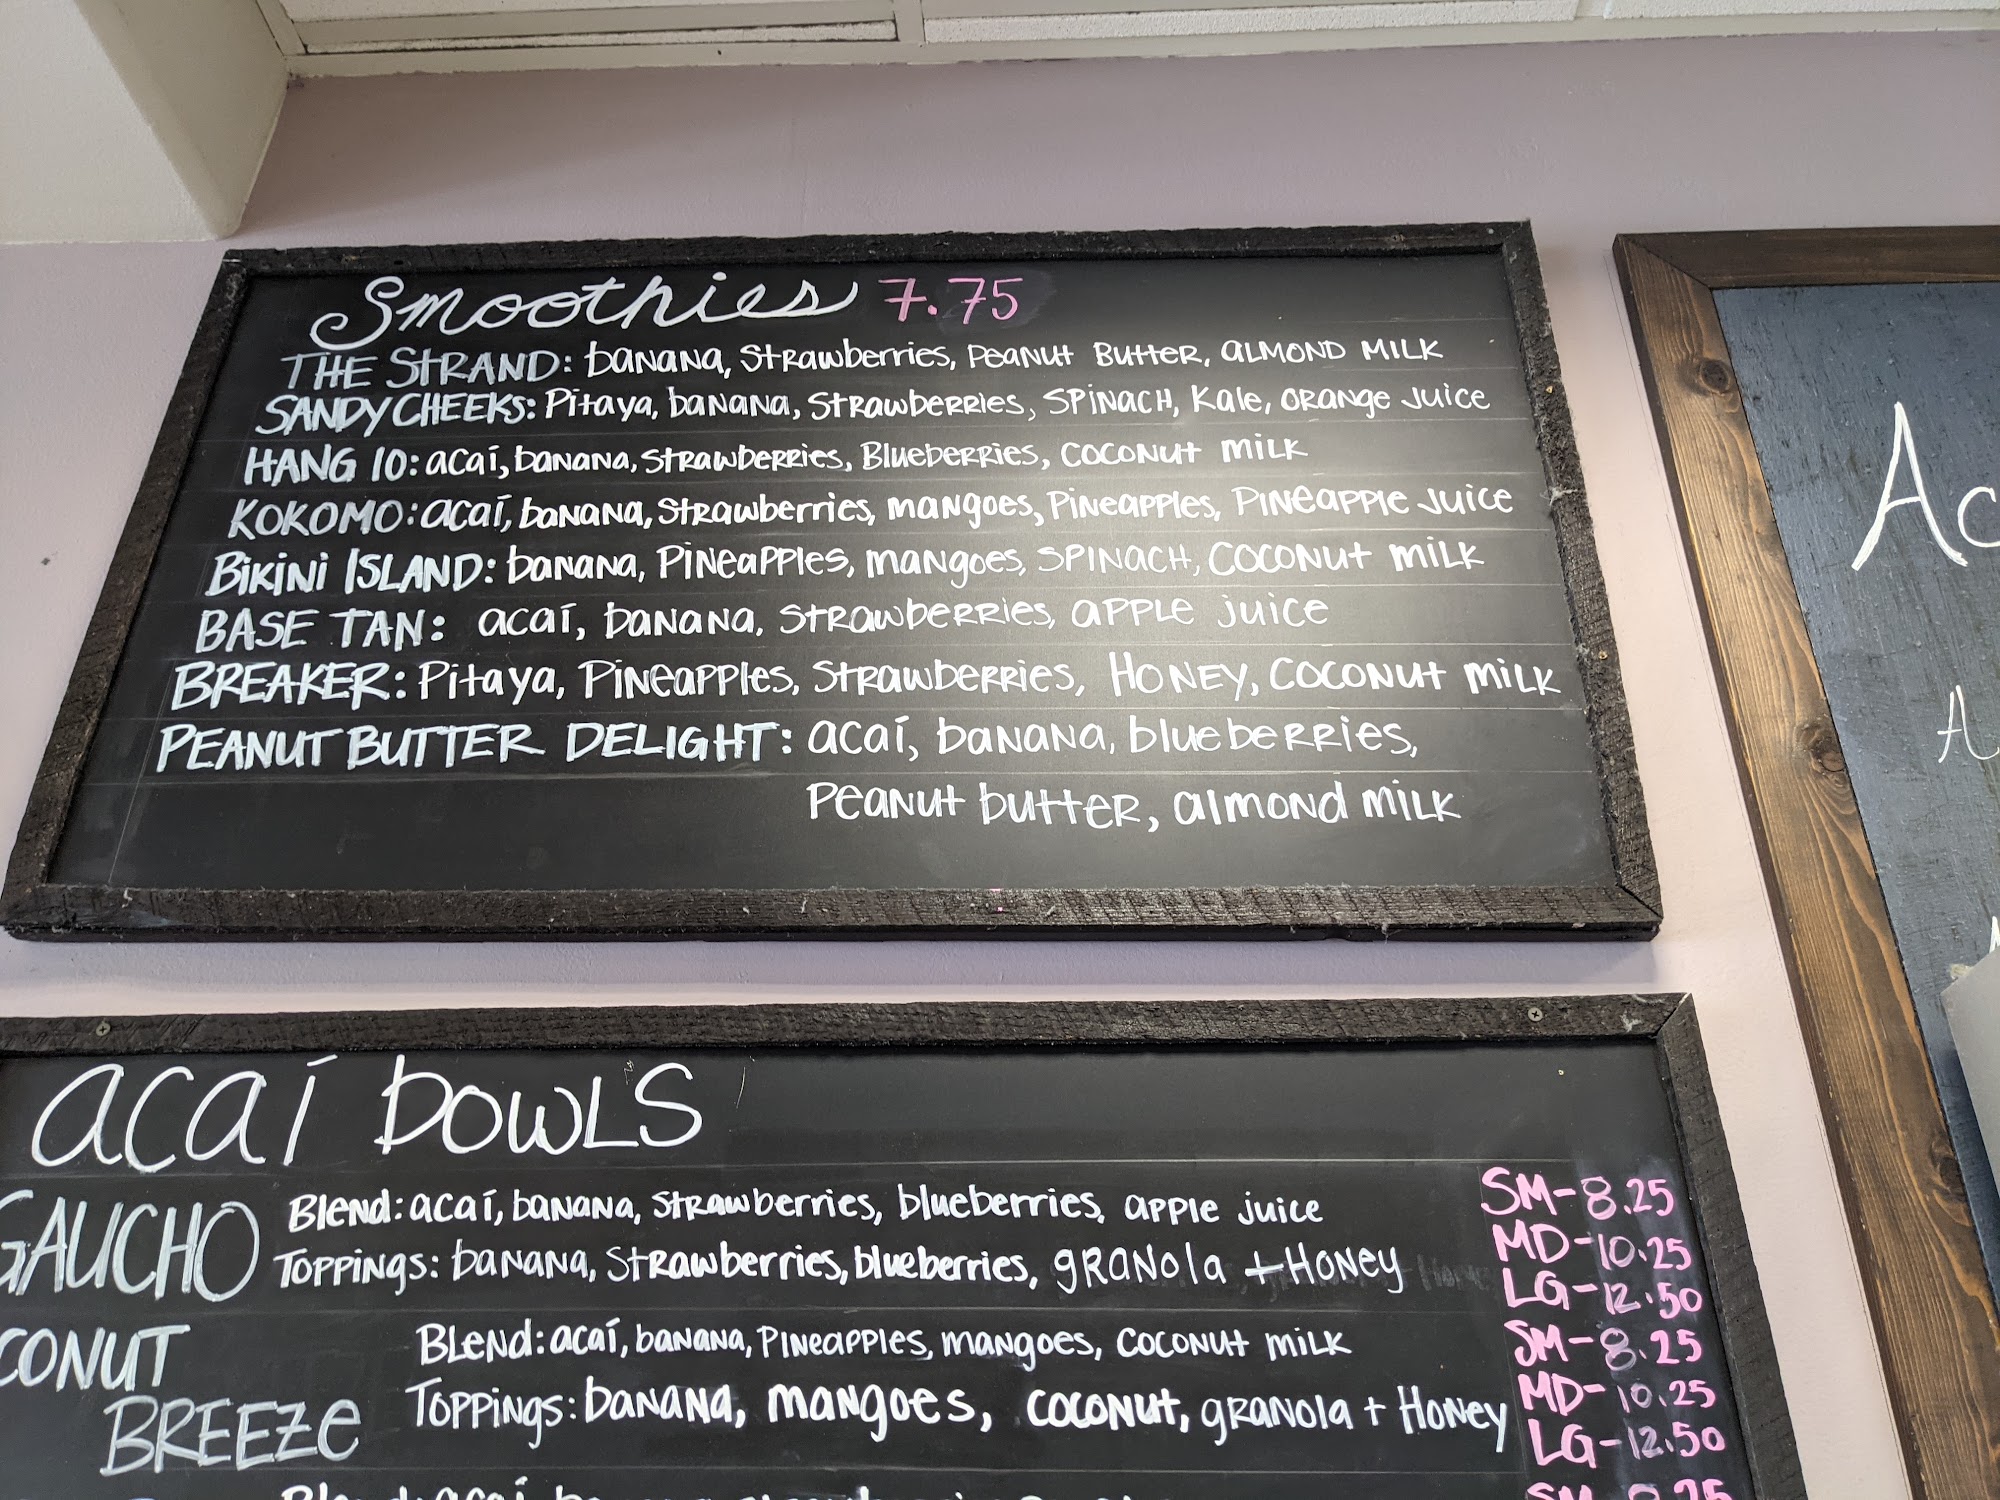 Smoothies 7.75
THE STRAND: banana, Strawberries, Peanut Butter, almond milk
SANDY CHEEKS: Pitaya, banana, Strawberries, Spinach, Kale, orange juice
HANG 10: acaí, banana, Strawberries, Blueberries, coconut milk
KOKOMO: acaí, banana, Strawberries, mangoes, Pineapples, Pineapple juice
Bikini ISLAND: banana, Pineapples, mangoes, Spinach, coconut milk
BASE TAN: acaí, banana, Strawberries, apple juice
BREAKER: Pitaya, Pineapples, Strawberries, Honey, coconut milk
PEANUT BUTTER DELIGHT: acaí, banana, blueberries,
Peanut butter, almond milk
acaí bowls
GAUCHO Blend: acaí, banana, Strawberries, blueberries, apple juice SM-8.25
Toppings: banana, Strawberries, blueberries, granola + Honey MD-10.25
LG-12.50
CONUT Blend: acaí, banana, Pineapples, mangoes, coconut milk SM-8.25
BREEZE Toppings: banana, mangoes, coconut, granola + Honey MD-10.25
LG-12.50
Blend: acaí
SM-8.25
Ac
A